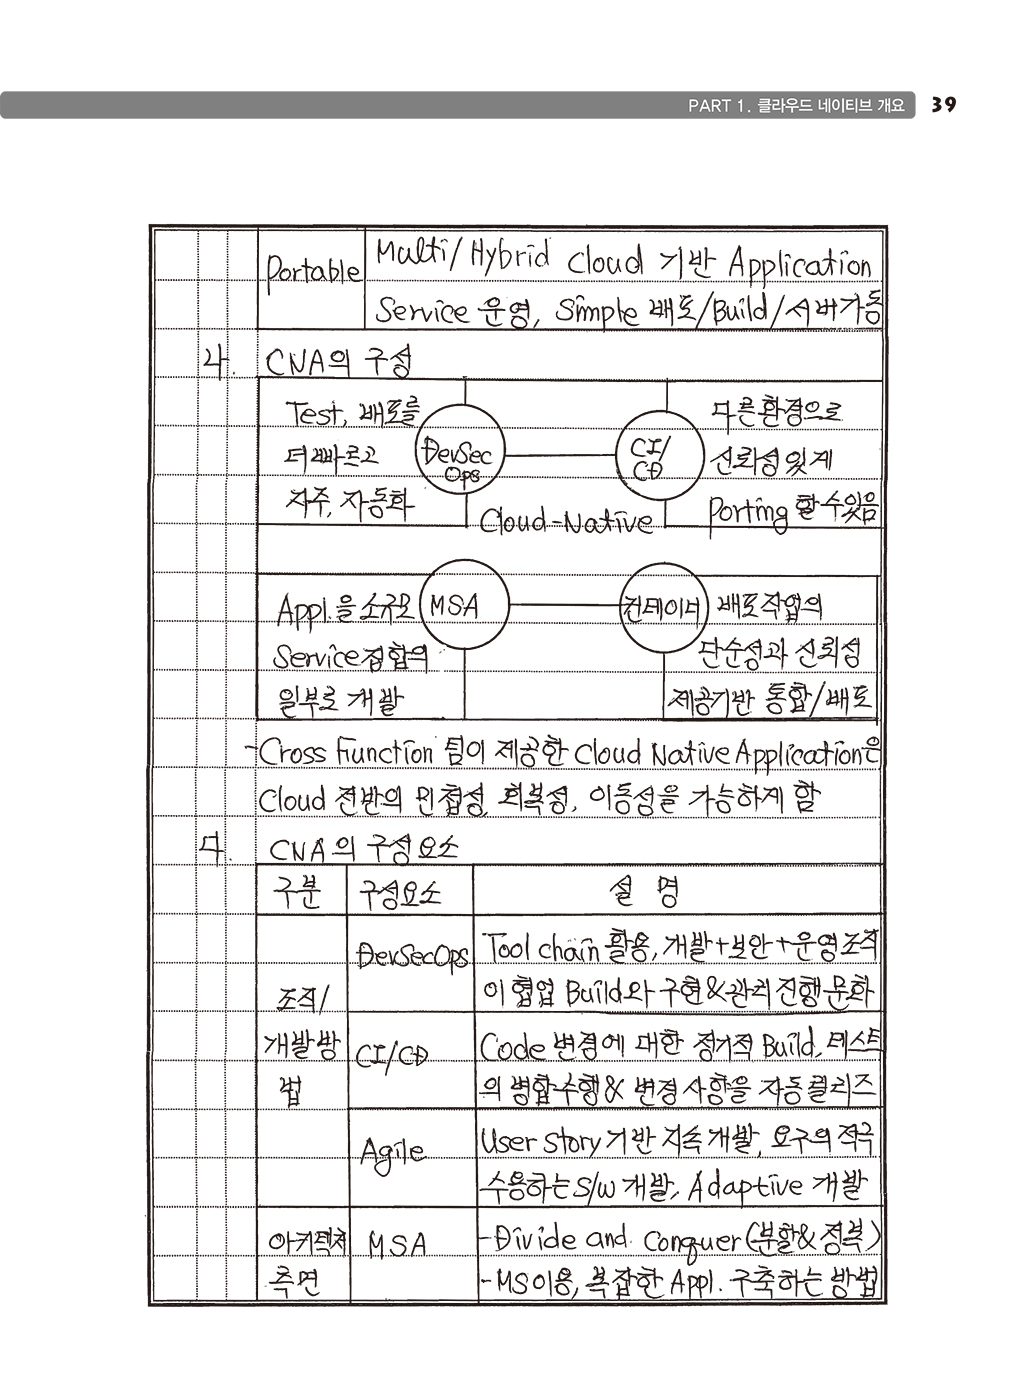 PART 1. 클라우드 네이티브 개요 39
Portable
Multi/Hybrid Cloud 기반 Application
Service 운영, Simple 배포/Build/서버가동
나. CNA의 구성
Test, 배포를
더 빠르고
자주, 자동화
DevSec
Ops
CI/
CD
다른환경으로
신뢰성있게
Porting 할 수있음
Cloud-Native
Appl.을 소규모
Service 집합의
일부로 개발
MSA
컨테이너
배포작업의
단순성과 신뢰성
제공기반 통합/배포
-Cross Function 팀이 제공한 Cloud Native Application은
Cloud 전반의 민첩성, 회복성, 이동성을 가능하게 함
다. CNA의 구성요소
구분 구성요소 설 명
조직/
개발방
법
DevSecOps
Tool chain 활용, 개발+보안+운영조직
이 협업 Build와 구현&관리 진행 문화
CI/CD
Code 변경에 대한 정기적 Build, 테스트
의 병합수행& 변경사항을 자동릴리즈
Agile
User Story 기반 지속 개발, 요구의 적극
수용하는 S/W 개발, Adaptive 개발
아키텍처
측면
MSA
-Divide and Conquer(분할&정복)
-MS이용, 복잡한 Appl. 구축하는 방법